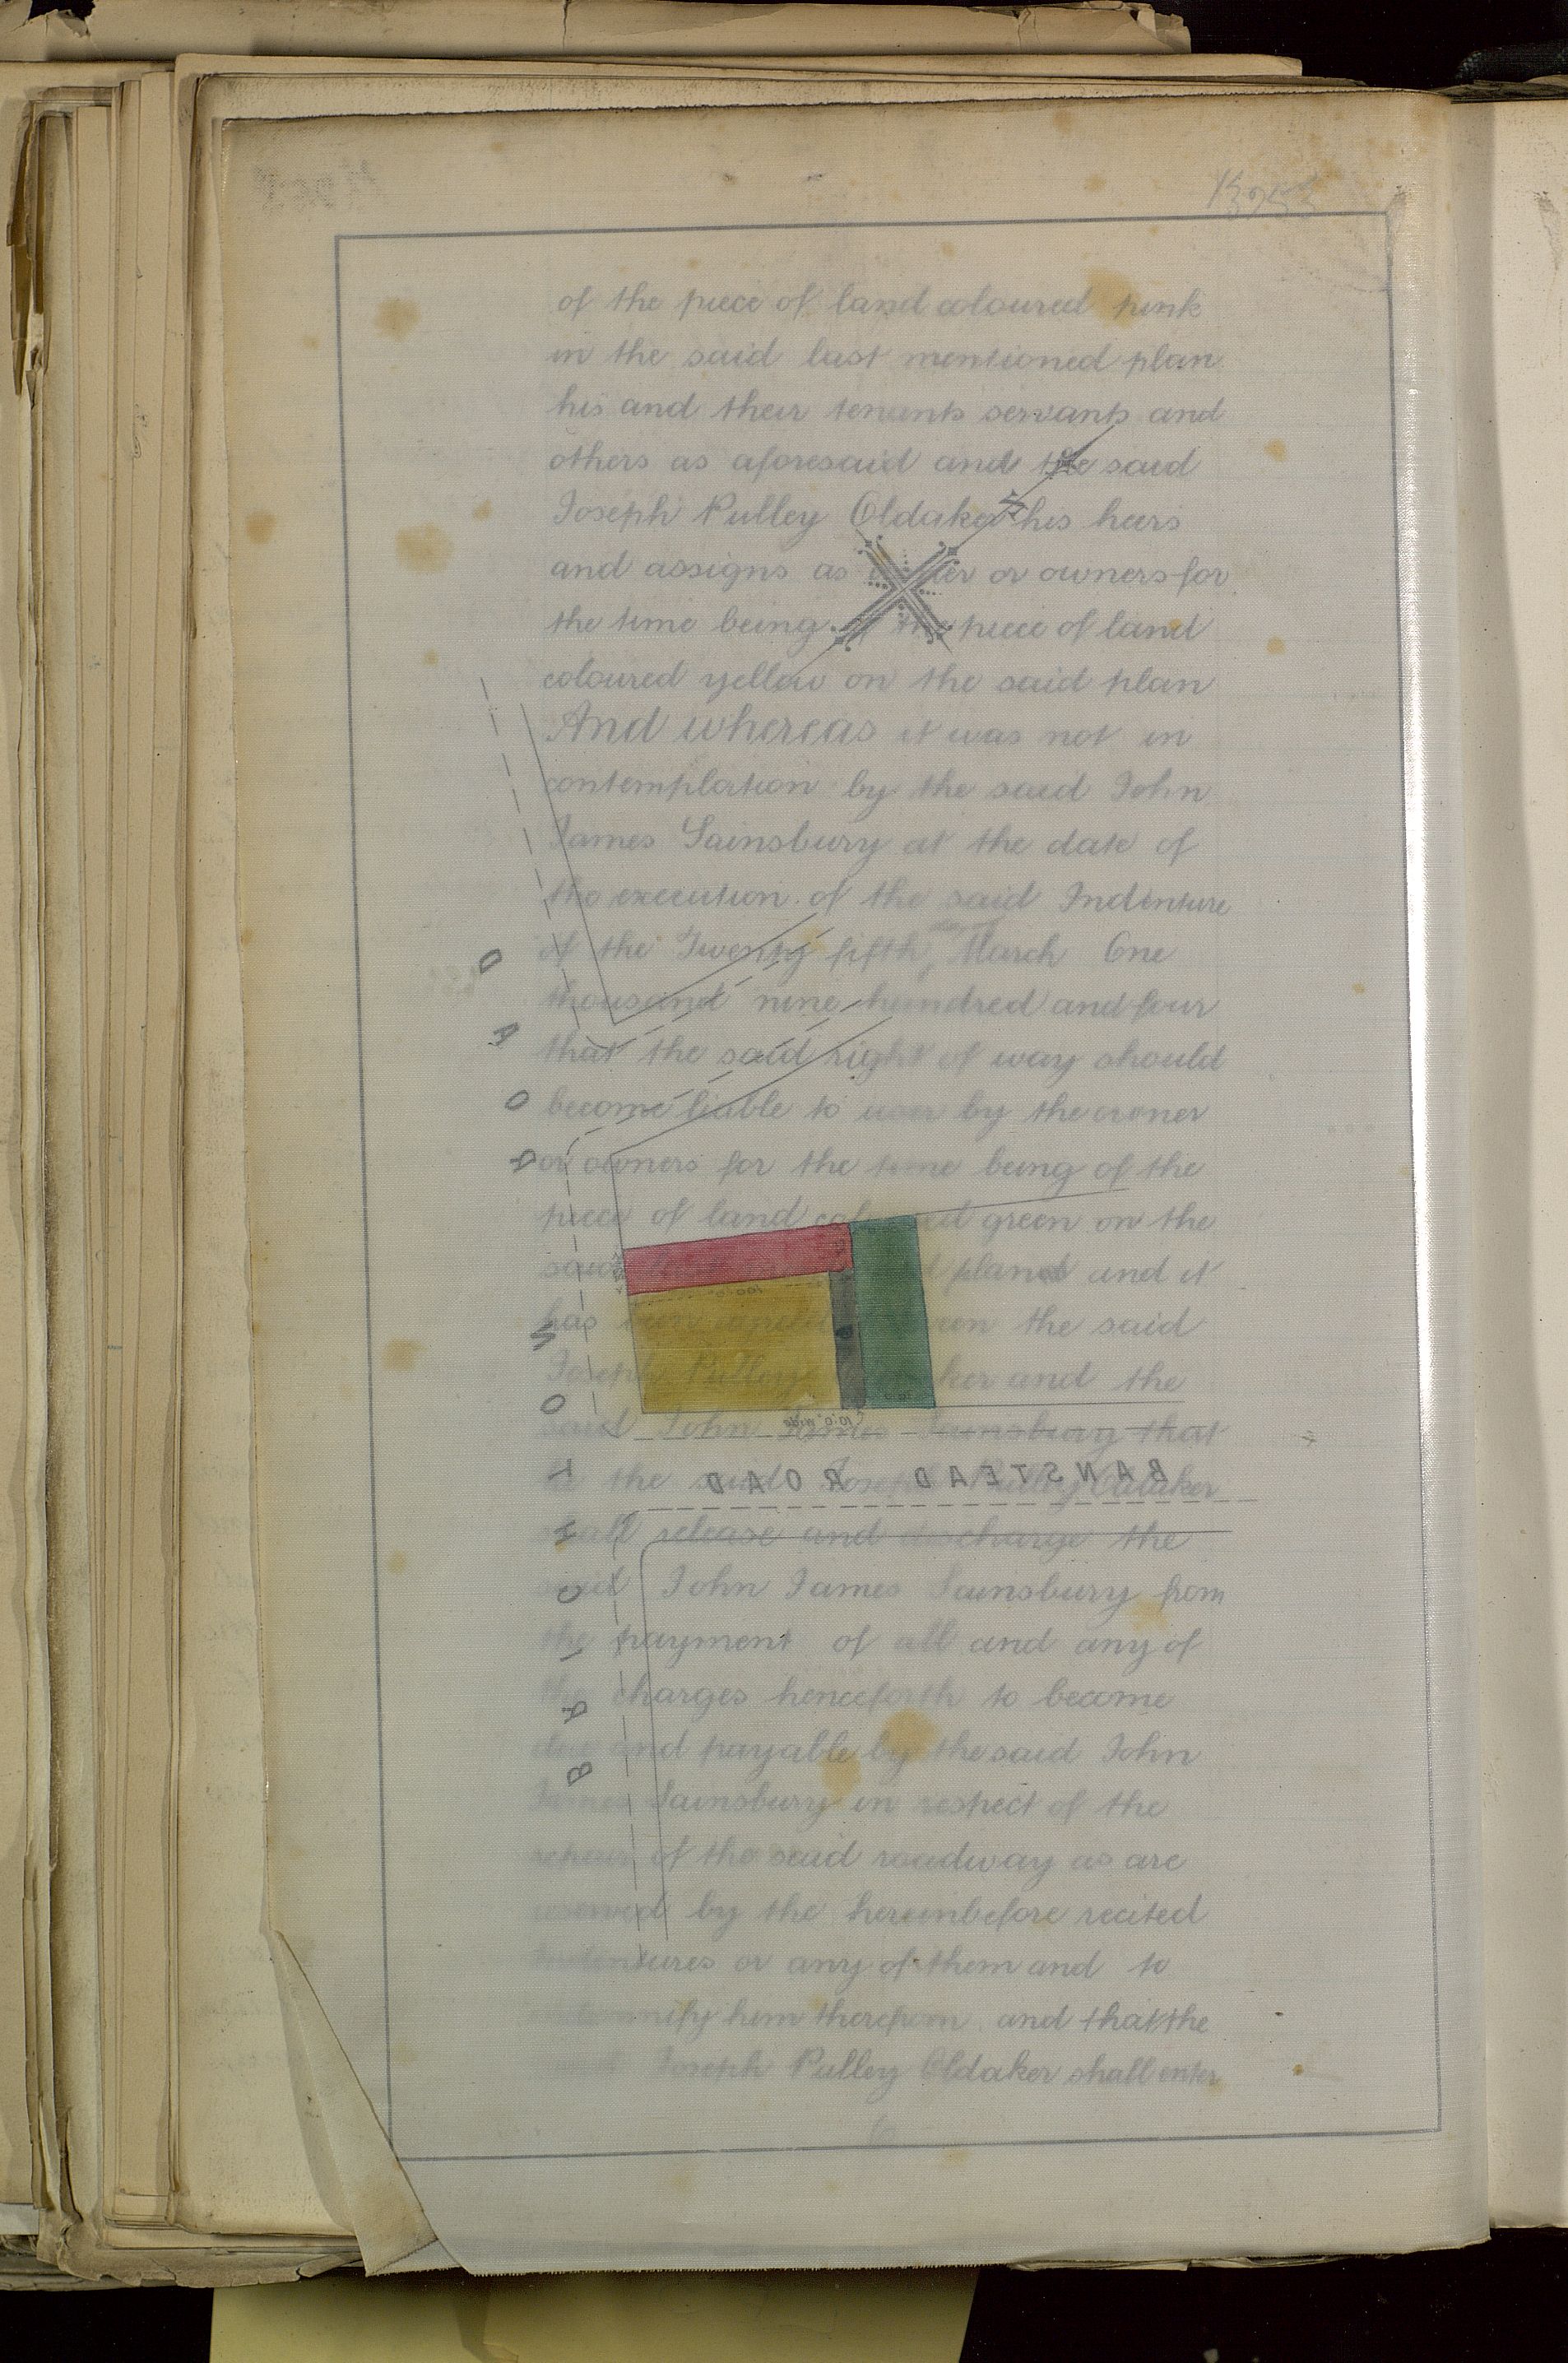 of the piece of land coloured pink
in the said last mentioned plan
his and their tenants servants and
others as aforesaid and the said
Joseph Pulley Oldaker his heirs
and assigns as or owners for
the time being piece of land
coloured yellow on the said plan
And whereas it was not in
contemplation by the said John
James Sainsbury at the date of
the execution of the said Indenture
of the Twenty fifth March One
thousand nine hundred and four
that the said right of way should
become liable to user by the owner
or owners for the time being of the
piece of land green on the
said plan and it
has been the said
Joseph Pulley and the
said John James Sainsbury that
the said Joseph Pulley Oldaker
BANSTEAD ROAD
10'0" wide
shall release and discharge the
said John James Sainsbury from
the payment of all and any of
the charges henceforth to become
due and payable by the said John
James Sainsbury in respect of the
repair of the said roadway as are
reserved by the hereinbefore recited
Indentures or any of them and to
indemnify him therefrom and that the
said Joseph Pulley Oldaker shall enter